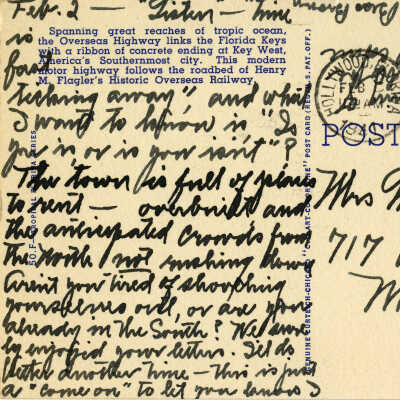 Feb. 2 — "Listen — time
is
Spanning great reaches of tropic ocean,
the Overseas Highway links the Florida Keys
with a ribbon of concrete ending at Key West,
America's Southernmost city. This modern
motor highway follows the roadbed of Henry
M. Flagler's Historic Overseas Railway.
fast
ticking away", and what
I want to know is "Is
you is or is you isn't"?
The town is full of places
to rent — overbuilt and
the anticipated crowds from
the North not rushing down
Aren't you tired of shoveling
yourselves out, or are you
already in the South? We sure-
ly enjoyed your letters. I'll do
better another time — this is just
a "come on" to let you know I
HOLLYWOOD
POST
Mrs
717
50.F— TROPICAL FLORIDA SERIES
GENUINE CURTEICH-CHICAGO "C.T. ART-COLORTONE" POST CARD (REG. U.S. PAT. OFF.)